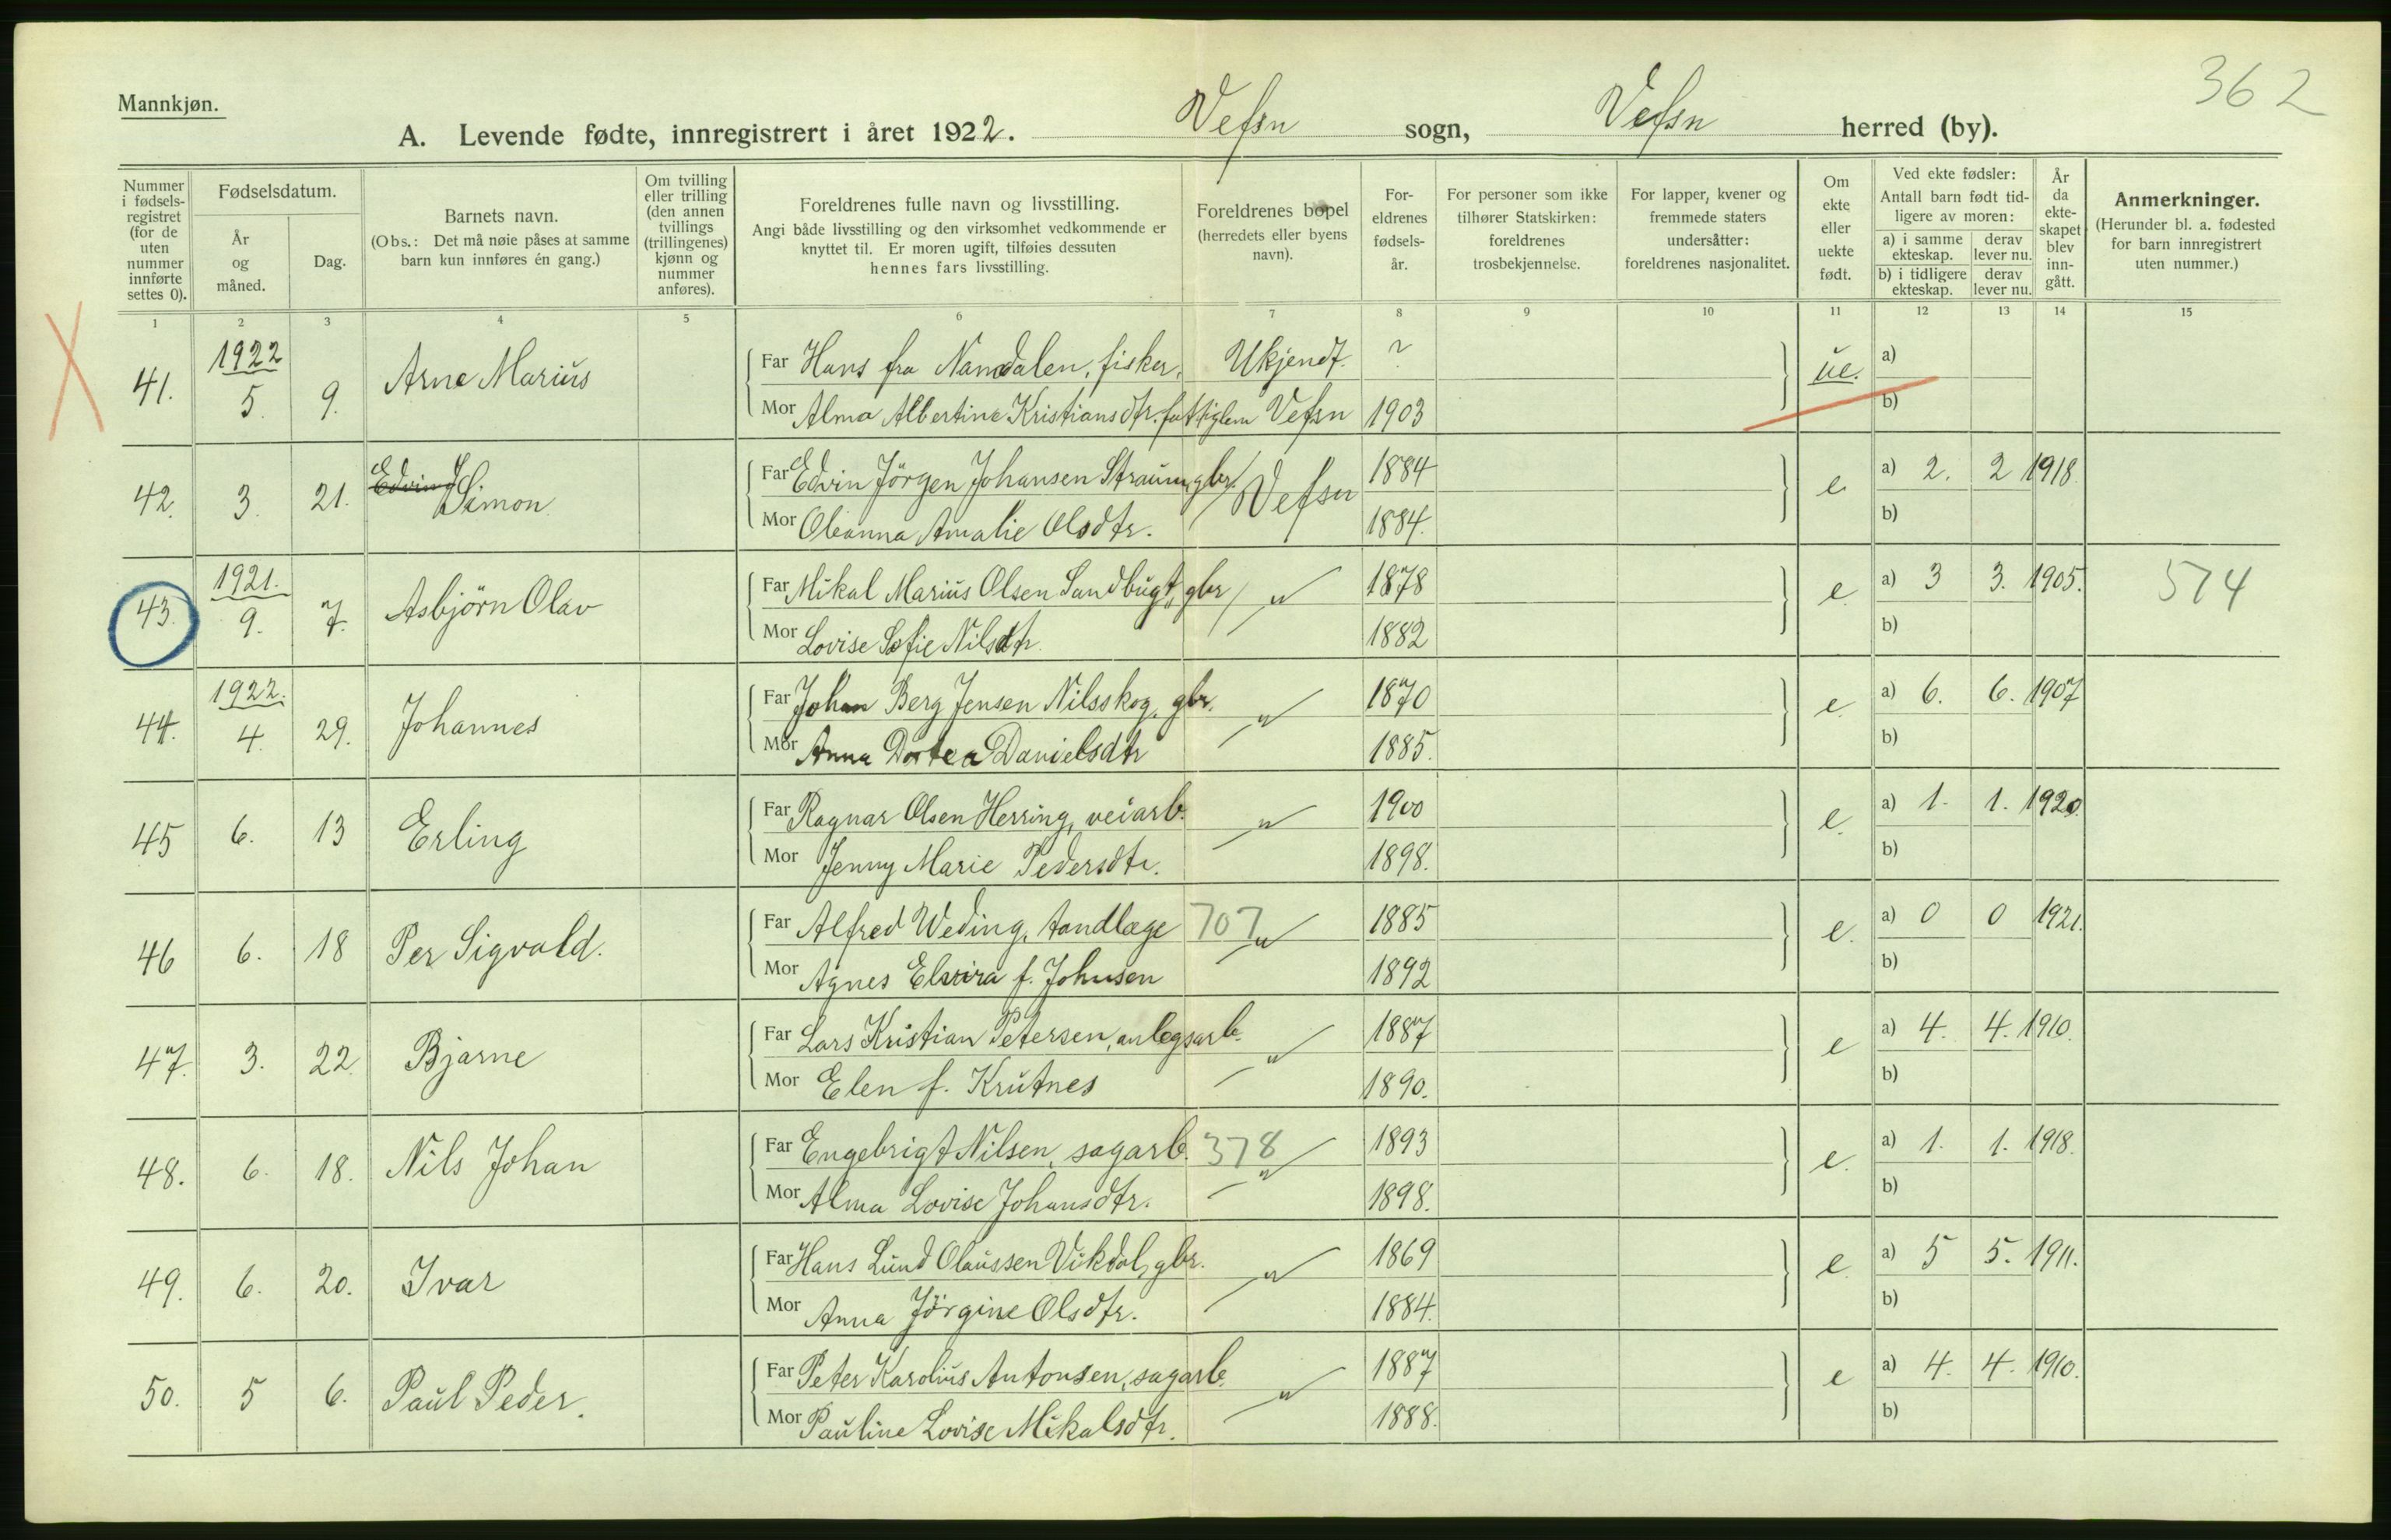 362
Mannkjøn.
A. Levende fødte, innregistrert i året 1922. Vefsn sogn, Vefsn herred (by).
Nummer i fødsels-registret (for de uten nummer innførte settes 0).
Fødselsdatum.
År og måned.
Dag.
Barnets navn.
(Obs.: Det må nøie påses at samme barn kun innføres én gang.)
Om tvilling eller trilling (den annen tvillings (trillingenes) kjønn og nummer anføres).
Foreldrenes fulle navn og livsstilling.
Angi både livsstilling og den virksomhet vedkommende er knyttet til. Er moren ugift, tilføies dessuten hennes fars livsstilling.
Foreldrenes bopel (herredets eller byens navn).
For-eldrenes fødsels-år.
For personer som ikke tilhører Statskirken: foreldrenes trosbekjennelse.
For lapper, kvener og fremmede staters undersåtter: foreldrenes nasjonalitet.
Om ekte eller uekte født.
Ved ekte fødsler:
Antall barn født tid-ligere av moren:
a) i samme ekteskap. derav lever nu.
b) i tidligere ekteskap. derav lever nu.
År da ekte-skapet blev inn-gått.
Anmerkninger.
(Herunder bl. a. fødested for barn innregistrert uten nummer.)
1 2 3 4 5 6 7 8 9 10 11 12 13 14 15
41. 1922 5. 9. Arne Marius Far Hans fra Namdalen, fisker. Ukjendt. ? ue. a)
Mor Alma Albertine Kristiansdtr. fattiglem Vefsn 1903 b)
42. 3. 21. Edvin Simon Far Edvin Jörgen Johansen Straum, gbr. Vefsn 1884 e a) 2. 2 1918.
Mor Oleanna Amalie Olsdtr. 1884. b)
43. 1921. 9. 7. Asbjörn Olav Far Mikal Marius Olsen Sandbugt, gbr " 1878 e. a) 3 3. 1905. 574
Mor Lovise Sofie Nilsdtr. 1882 b)
44. 1922. 4. 29. Johannes Far Johan Berg Jensen Nilsskog, gbr. " 1870 e. a) 6. 6. 1907
Mor Anna Dortea Danielsdtr 1885. b)
45 6. 13 Erling Far Ragnar Olsen Herring, veiarb. " 1900 e. a) 1. 1. 1920.
Mor Jenny Marie Pedersdtr. 1898. b)
46 6. 18 Per Sigvald. Far Alfred Weding, tandlæge 707 " 1885 e. a) 0 0 1921.
Mor Agnes Elvira f. Johnsen 1892 b)
47. 3. 22 Bjarne Far Lars Kristian Petersen, anlegsarb. " 1887 e a) 4. 4. 1910.
Mor Elen f. Krutnes 1890. b)
48. 6. 18. Nils Johan Far Engebrigt Nilsen, sagarb. 378 " 1893 e. a) 1. 1. 1918.
Mor Alma Lovise Johansdtr. 1898. b)
49. 6. 20. Ivar Far Hans Lund Olaussen Vikdal, gbr. " 1869 e. a) 5 5. 1911.
Mor Anna Jörgine Olsdtr. 1884. b)
50. 5 6. Paul Peder. Far Peter Karolius Antonsen, sagarb. " 1887 e a) 4. 4. 1910.
Mor Pauline Lovise Mikalsdtr. 1888. b)